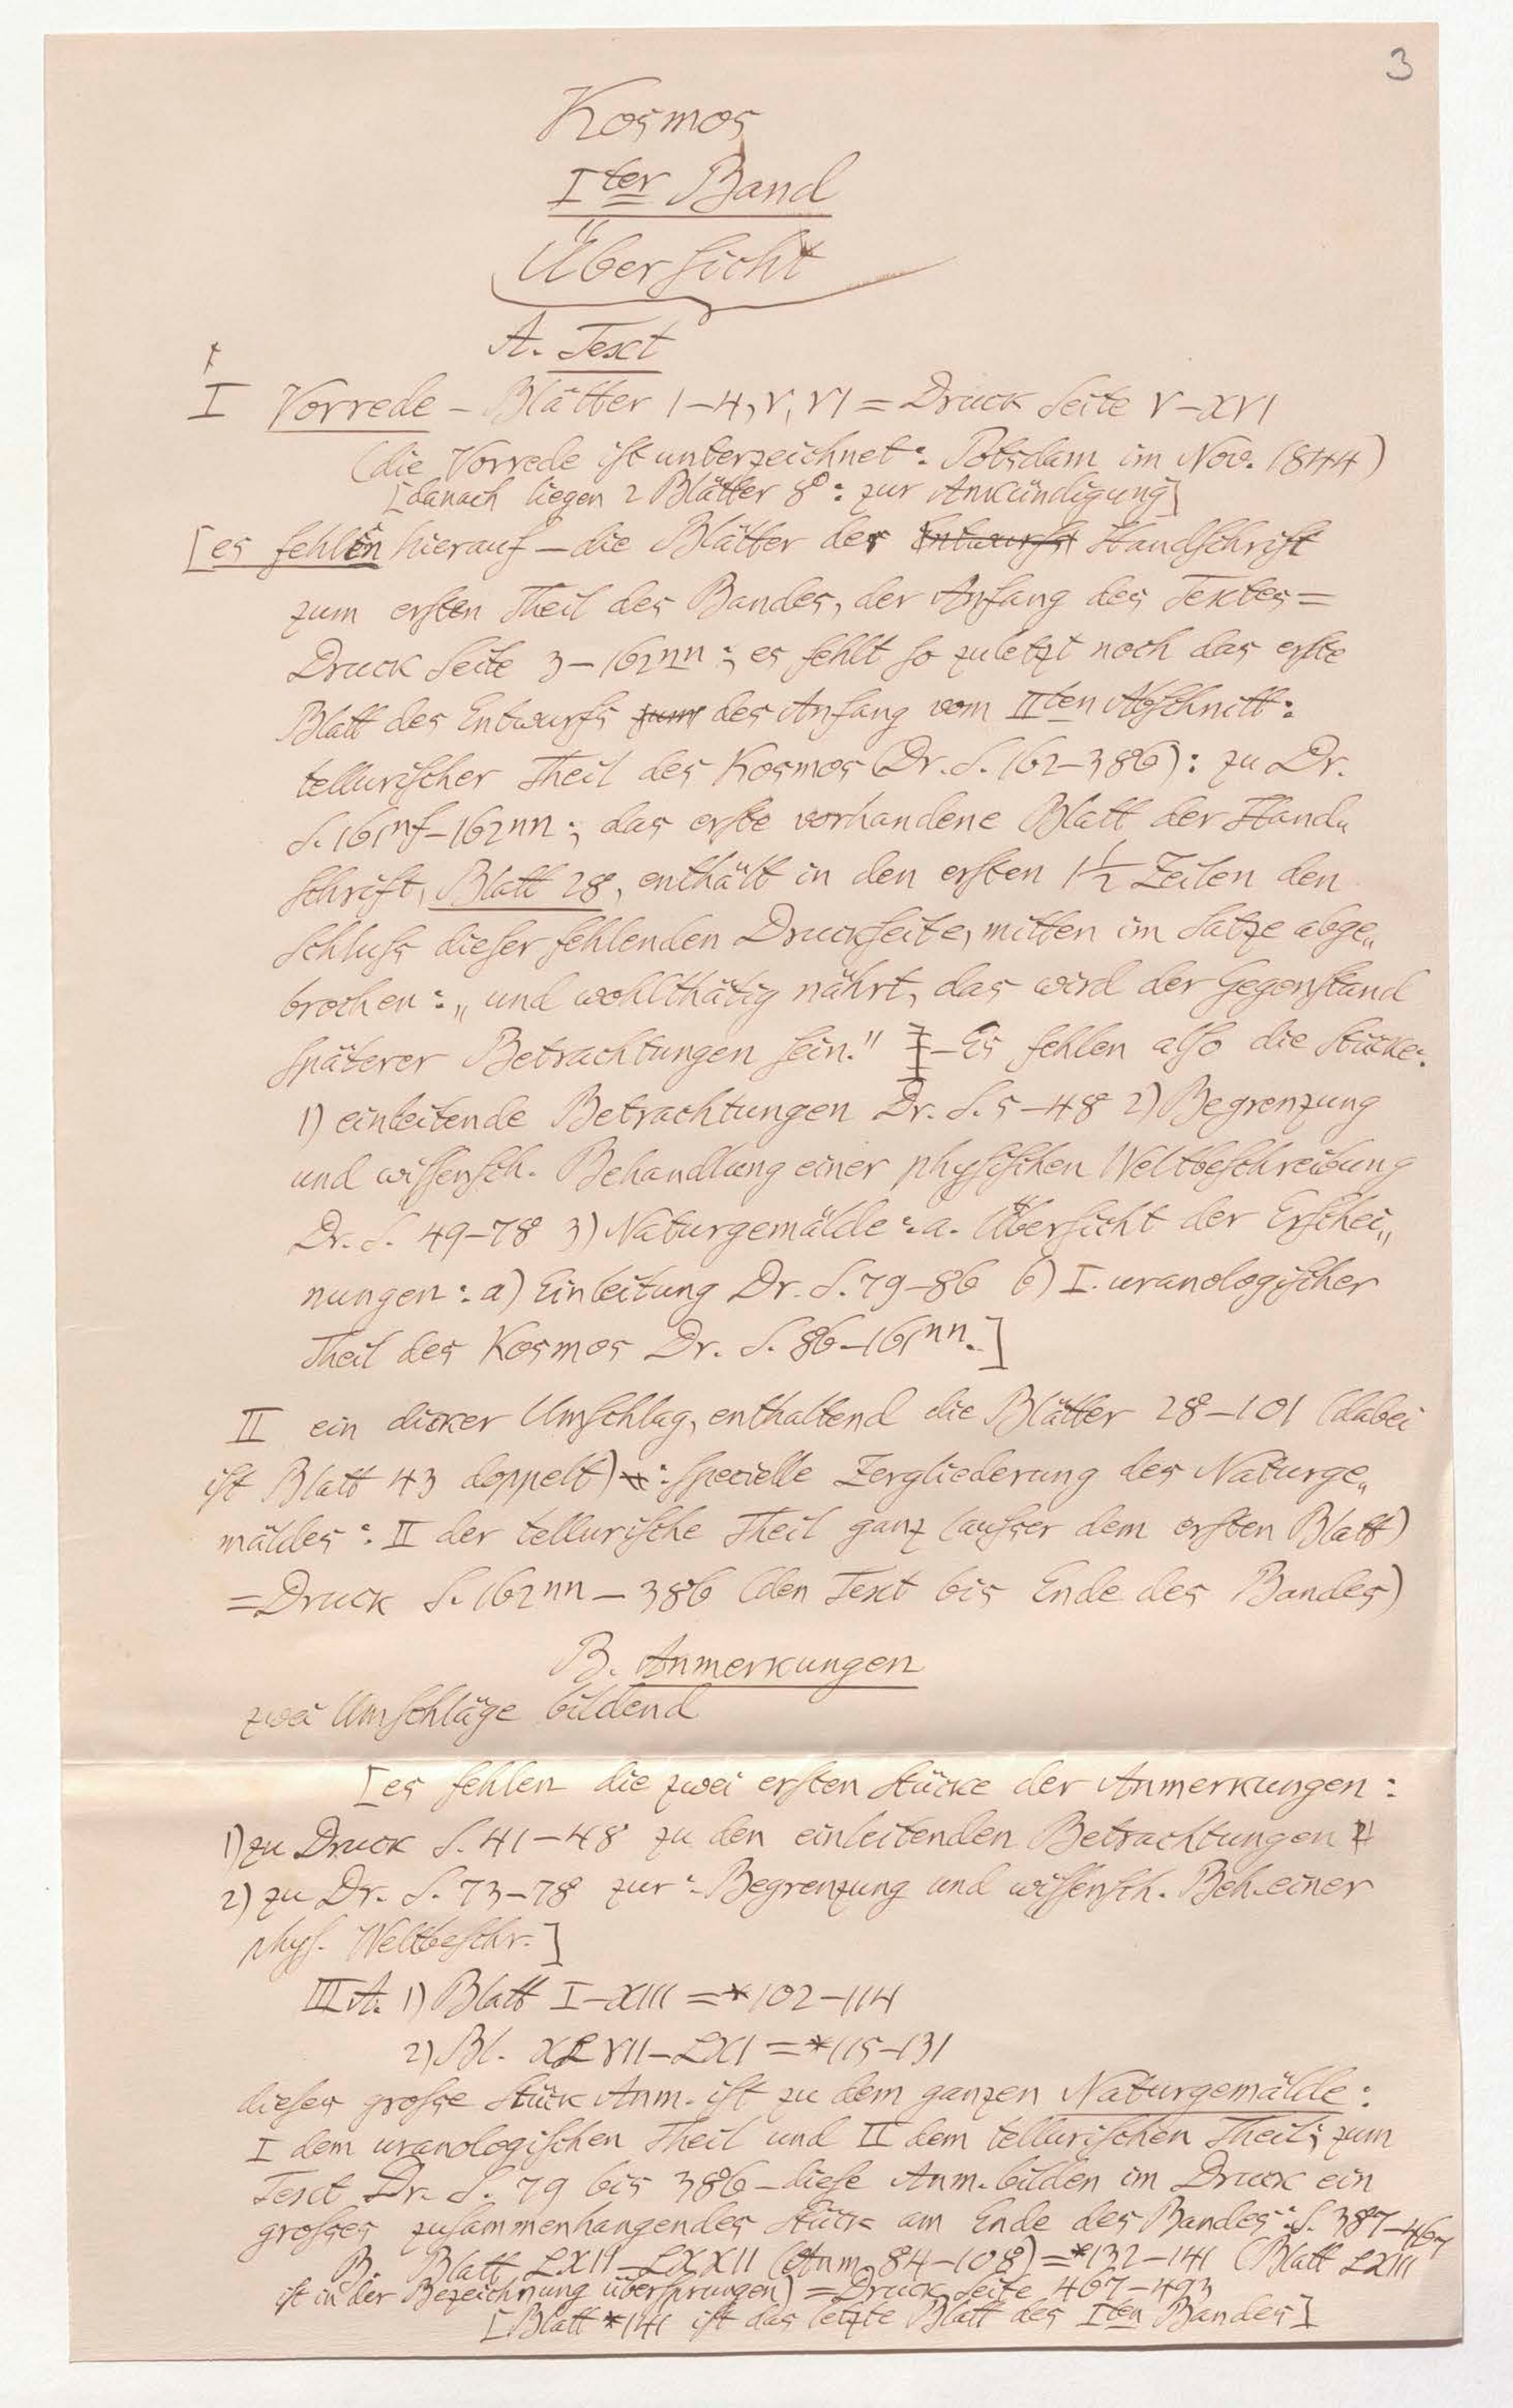 3
Kosmos
Iter Band
Übersicht
A. Text
I Vorrede – Blätter 1–4, V, VI = Druck Seite V–XVI
(die Vorrede ist unterzeichnet: Potsdam im Nov. 1844)
[danach liegen 2 Blätter 8°: zur Ankündigung]
[es fehlen hierauf – die Blätter der Handschrift
zum ersten Theil des Bandes, der Anfang des Textes =
Druck Seite 3–162nn; es fehlt so zuletzt noch das erste
Blatt des Entwurfs des Anfang vom IIten Abschnitt:
tellurischer Theil des Kosmos (Dr. S. 162–386): zu Dr.
S. 161nf–162nn; das erste vorhandene Blatt der Hand„
schrift, Blatt 28, enthält in den ersten 1½ Zeilen den
Schluss dieser fehlenden Druckseite, mitten im Satze abge„
brochen: „und wohlthätig nährt, das wird der Gegenstand
späterer Betrachtungen sein." – Es fehlen also die Stücke:
1) einleitende Betrachtungen Dr. S. 5–48 2) Begrenzung
und wissensch. Behandlung einer physischen Weltbeschreibung
Dr. S. 49–78 3) Naturgemälde: a. Übersicht der Erschei„
nungen: a) Einleitung Dr. S. 79–86 b) I. uranologischer
Theil des Kosmos Dr. S. 86–161nn.]
II ein dicker Umschlag, enthaltend die Blätter 28–101 (dabei
ist Blatt 43 doppelt): specielle Zergliederung des Naturge„
mäldes: II der tellurische Theil ganz (ausser dem ersten Blatt)
= Druck S. 162nn – 386 (den Text bis Ende des Bandes)
B. Anmerkungen
zwei Umschläge bildend
[es fehlen die zwei ersten Stücke der Anmerkungen:
1) zu Druck S. 41–48 zu den einleitenden Betrachtungen
2) zu Dr. S. 73–78 zur: Begrenzung und wissensch. Beh. einer
phys. Weltbeschr.]
III A. 1) Blatt I–XIII = *102–114
2) Bl. XLVII–LXI = *115–131
dieses grosse Stück Anm. ist zu dem ganzen Naturgemälde:
I dem uranologischen Theil und II dem tellurischen Theil; zum
Text Dr. S. 79 bis 386 – diese Anm. bilden im Druck ein
grosses zusammenhangendes Stück am Ende des Bandes: S. 387–467
B. Blatt LXII–LXXII (Anm. 84–108) = *132–141 (Blatt LXIII
ist in der Bezeichnung übersprungen) = Druck Seite 467–493
[Blatt *141 ist das letzte Blatt des Iten Bandes]